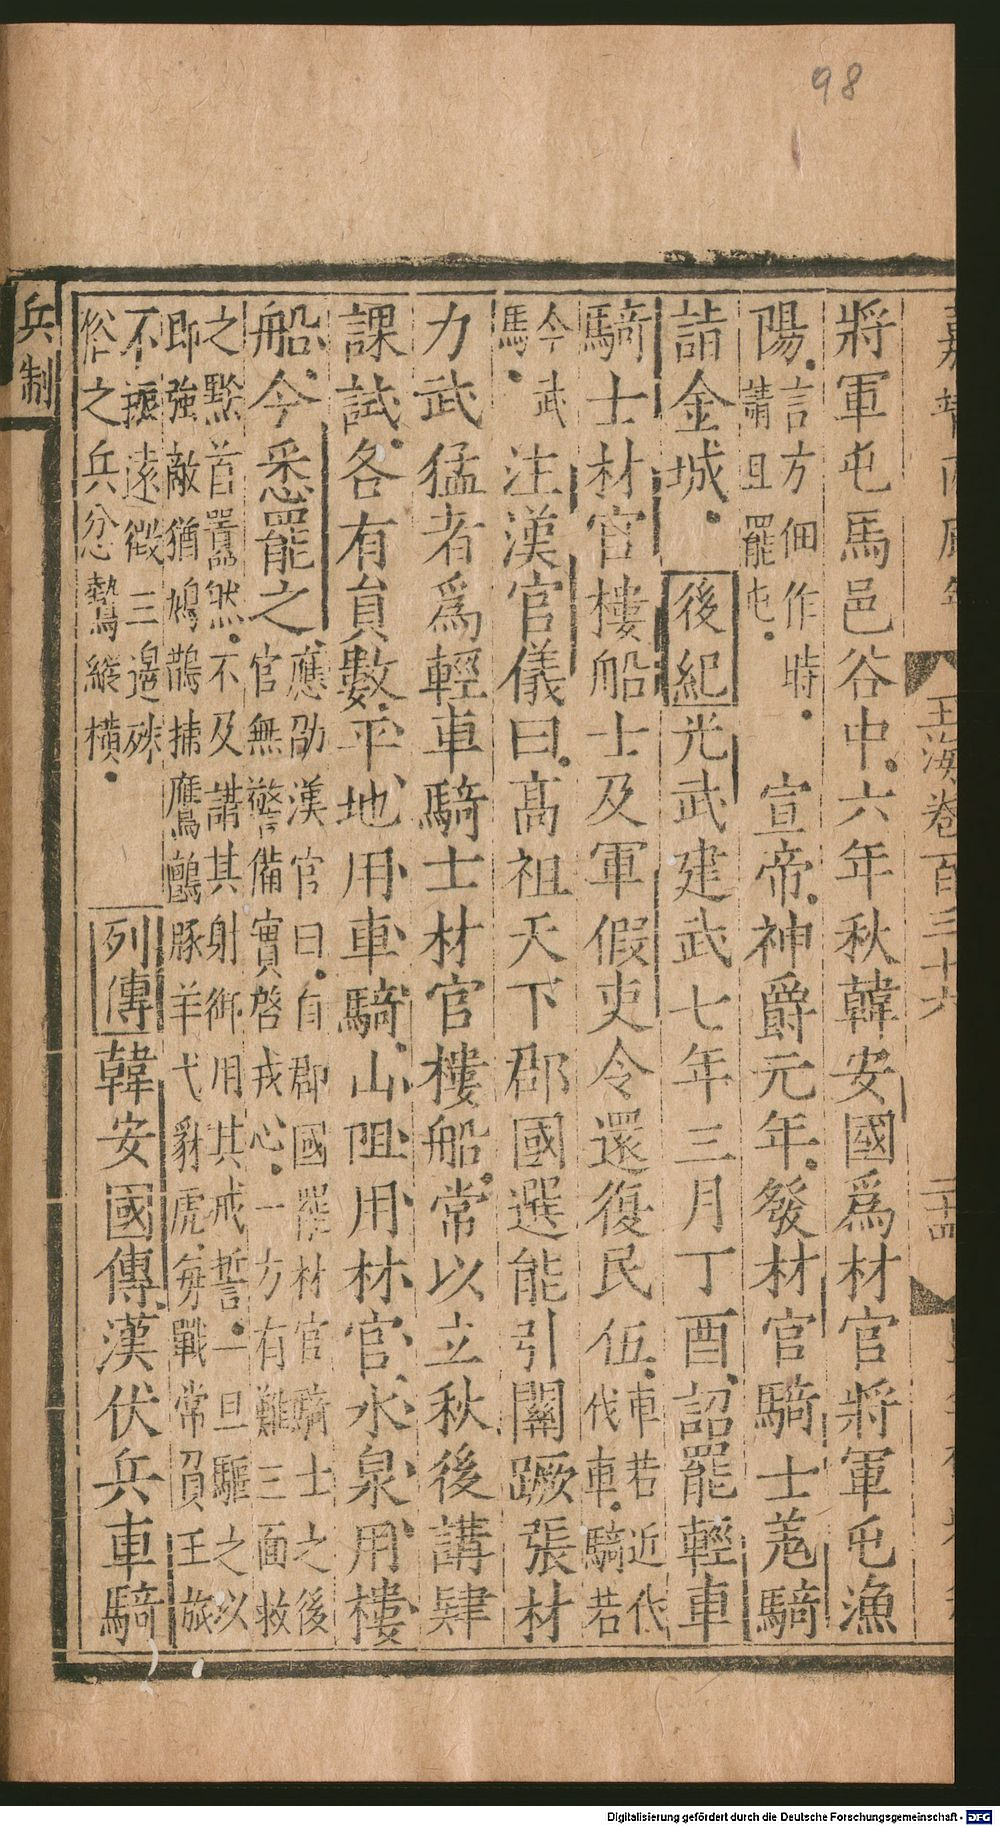 98
玉海卷百三十六
二十四
將軍屯馬邑谷中六年秋韓安國爲材官將軍屯漁
陽言方佃作時請且罷屯 宣帝神爵元年發材官騎士羌騎
詣金城後紀光武建武七年三月丁酉詔罷輕車
騎士材官樓船士及軍假吏令還復民伍車若近代代車騎若
今武馬注漢官儀曰高祖天下郡國選能引關蹶張材
力武猛者爲輕車騎士材官樓船常以立秋後講肄
課試各有員數平地用車騎山阻用材官水泉用樓
船今悉罷之應劭漢官曰自郡國罷材官騎士之後官無警備實啓戎心一方有難三面救
之黔首囂然不及講其射御用其戒誓一旦驅之以即強敵猶鳩鵲捕鷹鸇豚羊弋豺虎每戰常負王旅
不振遠徵三邊殊俗之兵忿鷙縱橫列傳韓安國傳漢伏兵車騎
兵制
Digitalisierung gefördert durch die Deutsche Forschungsgemeinschaft - DFG